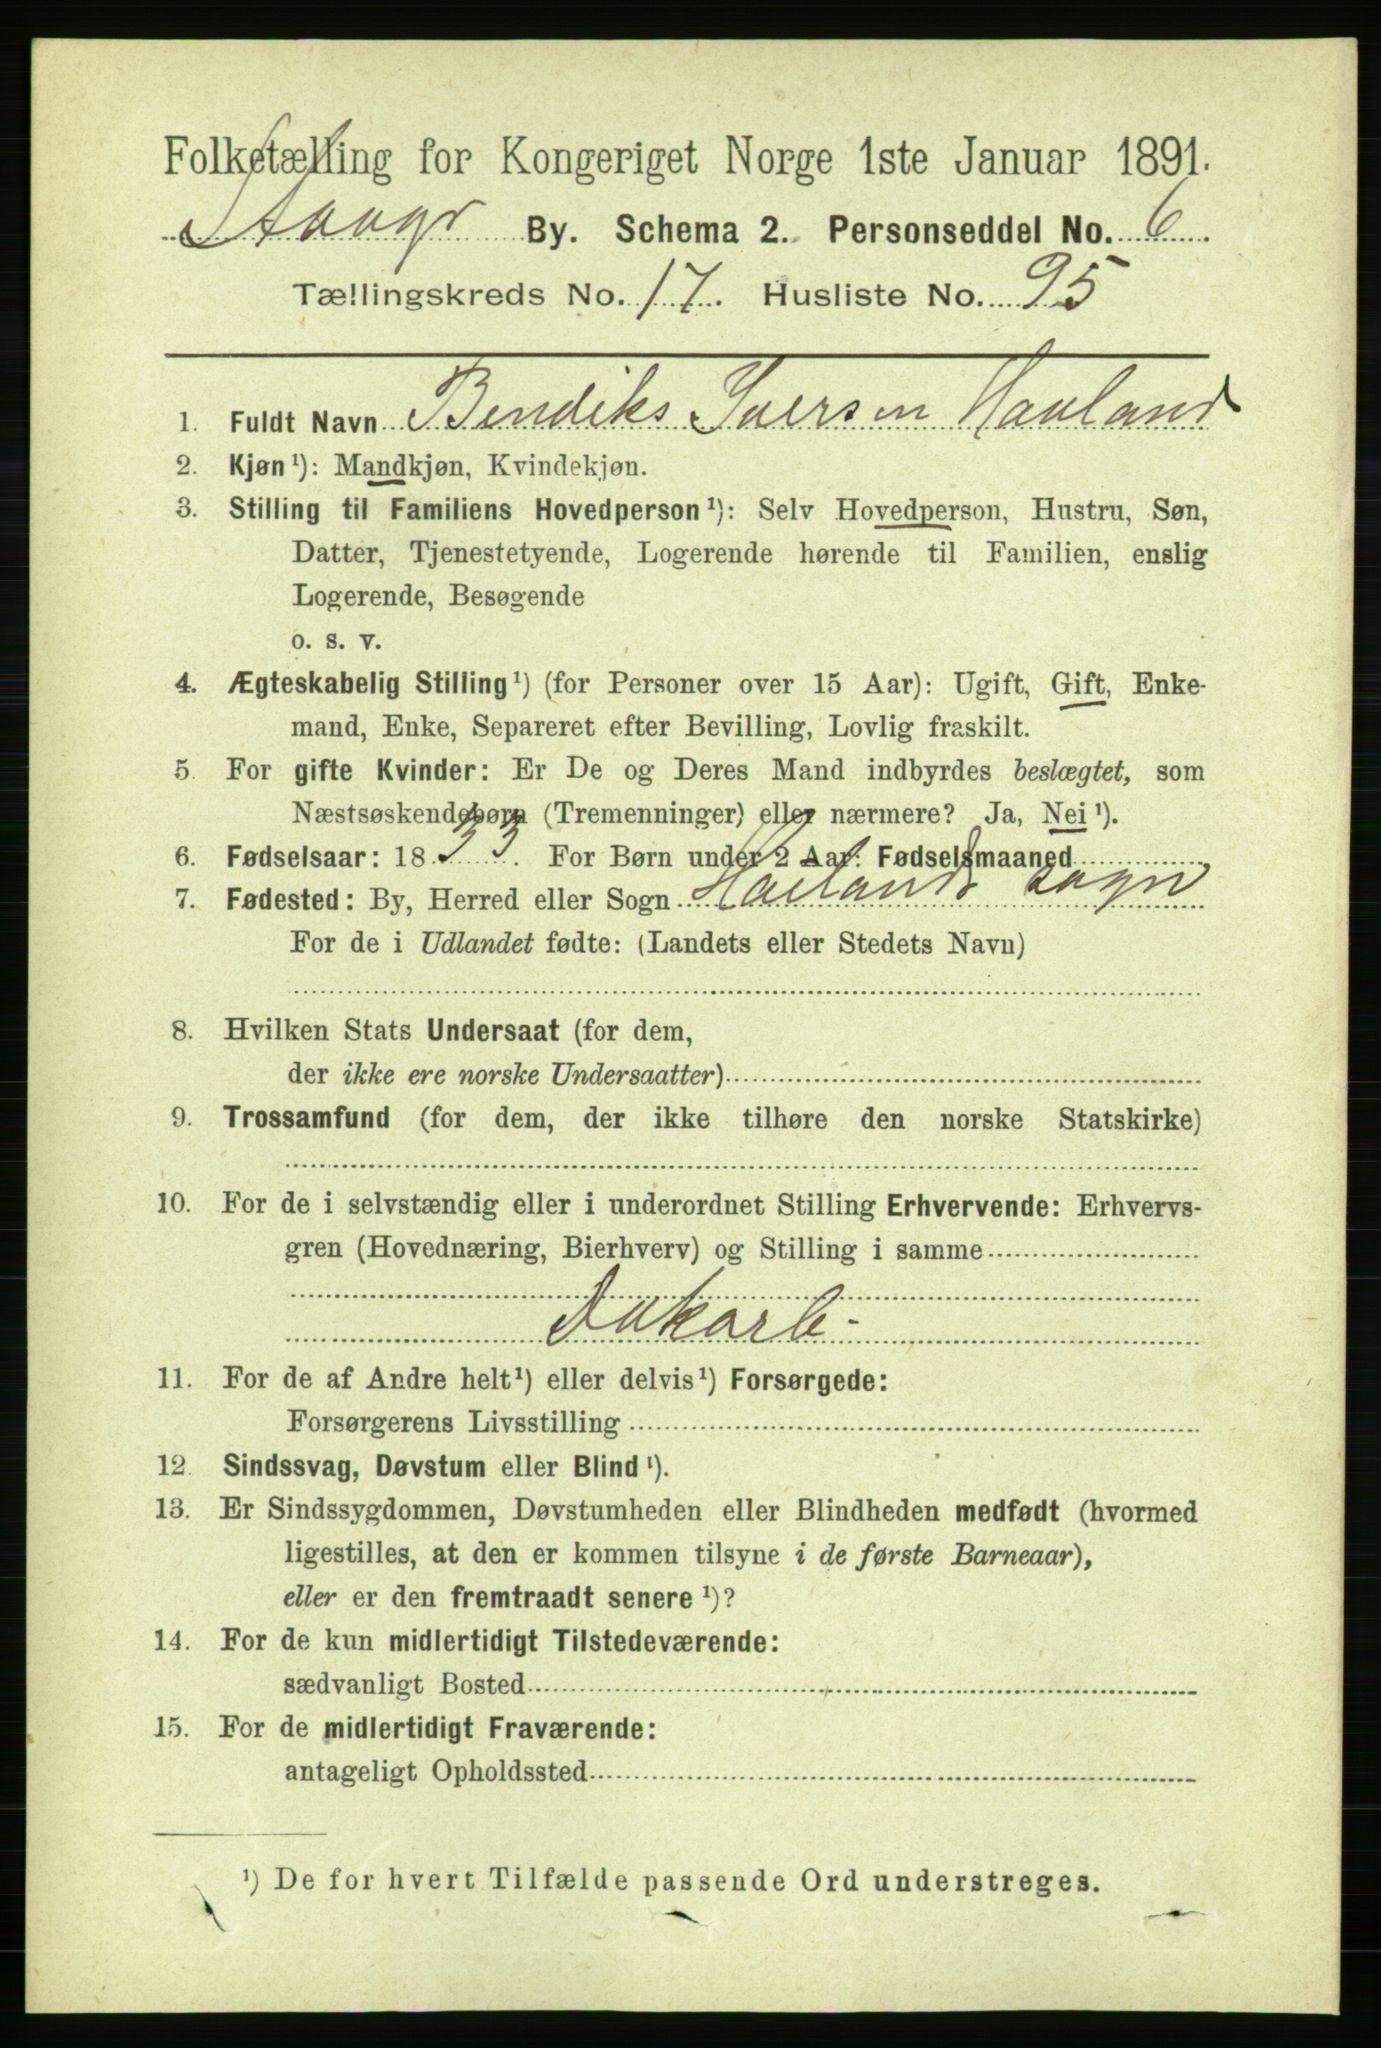 Folketælling for Kongeriget Norge 1ste Januar 1891.
By. Schema 2. Personseddel No. 6
Tællingskreds No. 17. Husliste No. 95
1. Fuldt Navn Bendiks Iversen Havland
2. Kjøn¹): Mandkjøn, Kvindekjøn.
3. Stilling til Familiens Hovedperson¹): Selv Hovedperson, Hustru, Søn,
Datter, Tjenestetyende, Logerende hørende til Familien, enslig
Logerende, Besøgende
o. s. v.
4. Ægteskabelig Stilling¹) (for Personer over 15 Aar): Ugift, Gift, Enke-
mand, Enke, Separeret efter Bevilling, Lovlig fraskilt.
5. For gifte Kvinder: Er De og Deres Mand indbyrdes beslægtet, som
Næstsøskendebørn (Tremenninger) eller nærmere? Ja, Nei¹).
6. Fødselsaar: 1833. For Børn under 2 Aar: Fødselsmaaned
7. Fødested: By, Herred eller Sogn sogn
For de i Udlandet fødte: (Landets eller Stedets Navn)
8. Hvilken Stats Undersaat (for dem,
der ikke ere norske Undersaatter)
9. Trossamfund (for dem, der ikke tilhøre den norske Statskirke)
10. For de i selvstændig eller i underordnet Stilling Erhvervende: Erhvervs-
gren (Hovednæring, Bierhverv) og Stilling i samme
11. For de af Andre helt¹) eller delvis¹) Forsørgede:
Forsørgerens Livsstilling
12. Sindssvag, Døvstum eller Blind¹).
13. Er Sindssygdommen, Døvstumheden eller Blindheden medfødt (hvormed
ligestilles, at den er kommen tilsyne i de første Barneaar),
eller er den fremtraadt senere¹)?
14. For de kun midlertidigt Tilstedeværende:
sædvanligt Bosted
15. For de midlertidigt Fraværende:
antageligt Opholdssted
¹) De for hvert Tilfælde passende Ord understreges.